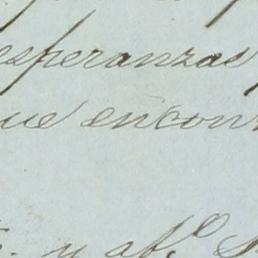 esperanzas
ue encon
y af.º S